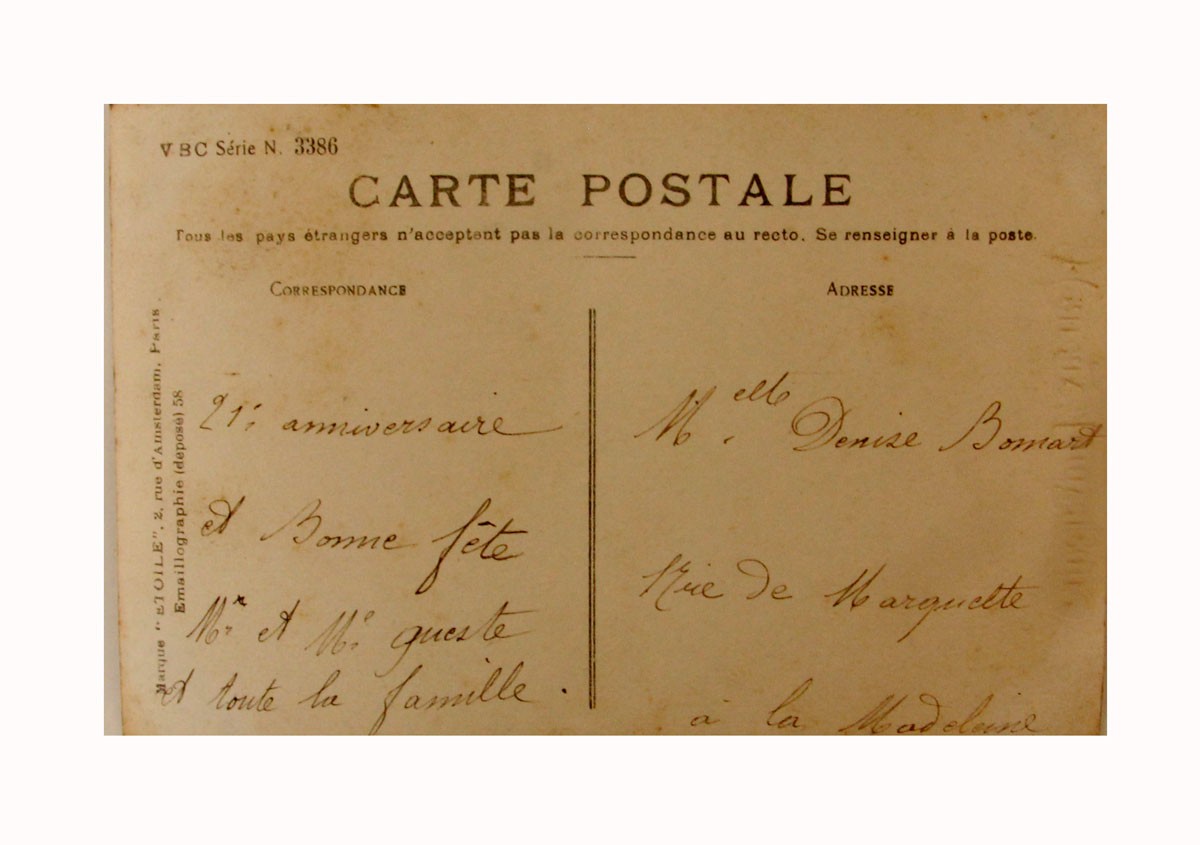 VBC Série N. 3386
CARTE POSTALE
Tous les pays étrangers n'acceptent pas la correspondance au recto. Se renseigner à la poste.
CORRESPONDANCE
ADRESSE
Marque "ETOILE", 2, rue d'Amsterdam, Paris
Emaillographie (deposé) 58
21e anniversaire
et Bonne fête
Mr et Me queste
et toute la famille.
Melle Denise Bomart
de Marquette
à la Madeleine